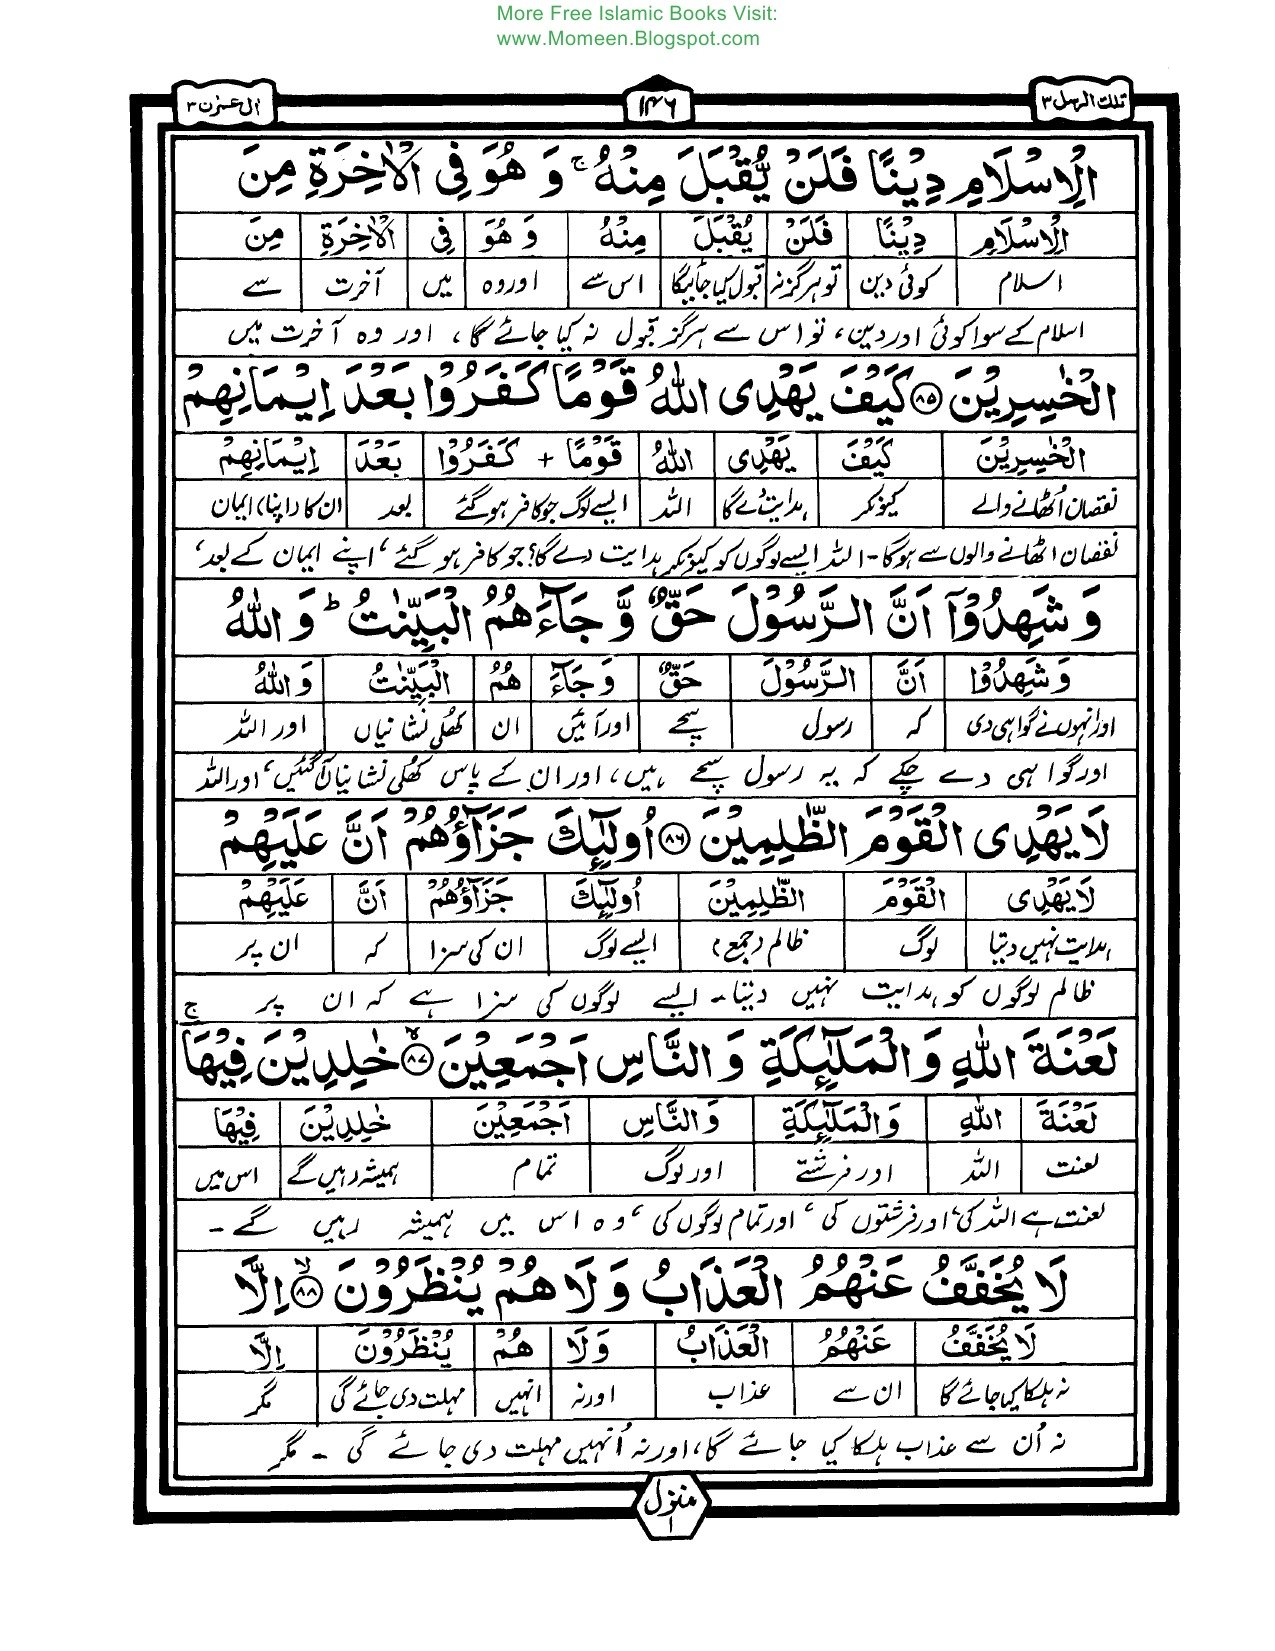 More Free Islamic Books Visit:
www.Momeen.Blogspot.com
تلك الرسل ٣
١٤٦
اٰل عمرٰن ٣
الْاِسْلَامِ دِيْنًا فَلَنْ يُّقْبَلَ مِنْهُ ۚ وَ هُوَ فِى الْاٰخِرَةِ مِنَ
الْاِسْلَامِ دِيْنًا فَلَنْ يُقْبَلَ مِنْهُ وَ هُوَ فِى الْاٰخِرَةِ مِنَ
اسلام کوئی دین تو ہرگز نہ قبول کیا جائیگا اس سے اور وہ میں آخرت سے
اسلام کے سوا کوئی اور دین، تو اس سے ہرگز قبول نہ کیا جائے گا، اور وہ آخرت میں
الْخٰسِرِيْنَ ۝٨٥ كَيْفَ يَهْدِى اللّٰهُ قَوْمًا كَفَرُوْا بَعْدَ اِيْمَانِهِمْ
الْخٰسِرِيْنَ كَيْفَ يَهْدِى اللّٰهُ قَوْمًا + كَفَرُوْا بَعْدَ اِيْمَانِهِمْ
نقصان اُٹھانے والے کیونکر ہدایت دے گا اللہ ایسے لوگ جو کافر ہو گئے بعد ان کا (اپنا) ایمان
نقصان اٹھانے والوں سے ہوگا۔ اللہ ایسے لوگوں کو کیونکر ہدایت دے گا؟ جو کافر ہو گئے، اپنے ایمان کے بعد،
وَ شَهِدُوْٓا اَنَّ الرَّسُوْلَ حَقٌّ وَّ جَآءَهُمُ الْبَيِّنٰتُ ؕ وَ اللّٰهُ
وَ شَهِدُوْا اَنَّ الرَّسُوْلَ حَقٌّ وَ جَآءَ هُمُ الْبَيِّنٰتُ وَ اللّٰهُ
اور انہوں نے گواہی دی کہ رسول سچے اور آئیں ان کھلی نشانیاں اور اللہ
اور گواہی دے چکے کہ یہ رسول سچے ہیں، اور ان کے پاس کھلی نشانیاں آگئیں، اور اللہ
لَا يَهْدِى الْقَوْمَ الظّٰلِمِيْنَ ۝٨٦ اُولٰٓئِكَ جَزَآؤُهُمْ اَنَّ عَلَيْهِمْ
لَا يَهْدِى الْقَوْمَ الظّٰلِمِيْنَ اُولٰٓئِكَ جَزَآؤُهُمْ اَنَّ عَلَيْهِمْ
ہدایت نہیں دیتا لوگ ظالم (جمع) ایسے لوگ ان کی سزا کہ ان پر
ظالم لوگوں کو ہدایت نہیں دیتا۔ ایسے لوگوں کی سزا ہے کہ ان پر
لَعْنَةَ اللّٰهِ وَ الْمَلٰٓئِكَةِ وَ النَّاسِ اَجْمَعِيْنَ ۝٨٧ۙ خٰلِدِيْنَ فِيْهَا ۚ
لَعْنَةَ اللّٰهِ وَ الْمَلٰٓئِكَةِ وَ النَّاسِ اَجْمَعِيْنَ خٰلِدِيْنَ فِيْهَا
لعنت اللہ اور فرشتے اور لوگ تمام ہمیشہ رہیں گے اس میں
لعنت ہے اللہ کی، اور فرشتوں کی، اور تمام لوگوں کی، وہ اس میں ہمیشہ رہیں گے۔
لَا يُخَفَّفُ عَنْهُمُ الْعَذَابُ وَ لَا هُمْ يُنْظَرُوْنَ ۝٨٨ۙ اِلَّا
لَا يُخَفَّفُ عَنْهُمُ الْعَذَابُ وَلَا هُمْ يُنْظَرُوْنَ اِلَّا
نہ ہلکا کیا جائے گا ان سے عذاب اور نہ انہیں مہلت دی جائے گی مگر
نہ اُن سے عذاب ہلکا کیا جائے گا، اور نہ اُنہیں مہلت دی جائے گی۔ مگر
منزل ١